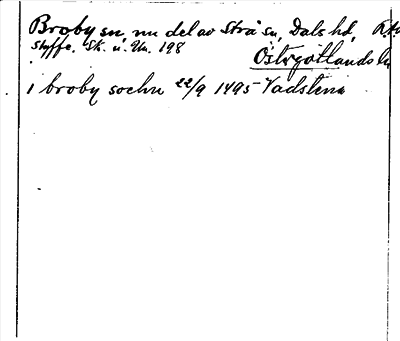 Broby sn, nu del av Stra sn, Dals hd,
Styffe. Sk. u. Un. 198
Östergötlands
i broby sochn 22/9 1495 Vadstena